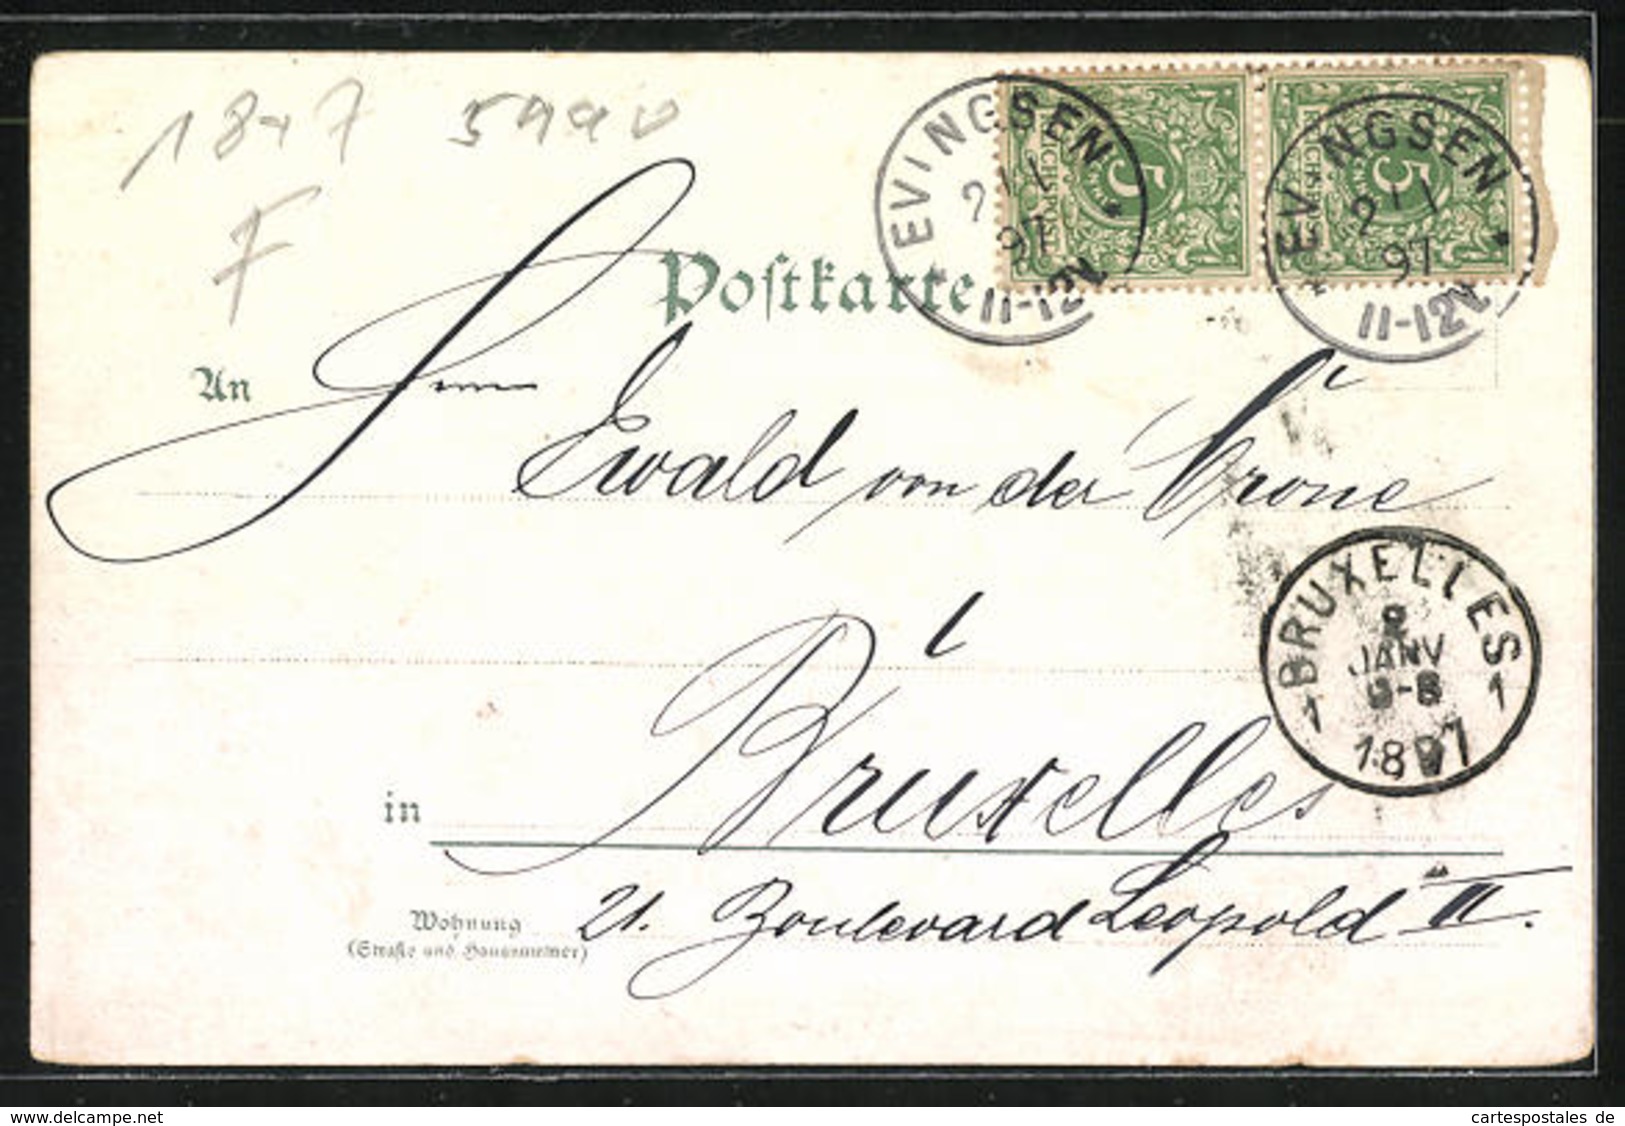 1897 5990
F
EVINGSEN
2 1
97
11-12V.
EVINGSEN
2 1
97
11-12V.
5
REICHSPOST
5
REICHSPOST
Postkarte
An
Herrn
Ewald von der Crone
BRUXELLES
JANV
1897
1 1
in Bruxelles
Wohnung
(Straße und Hausnummer)
21. Boulevard Leopold II.
www.delcampe.net
cartespostales de